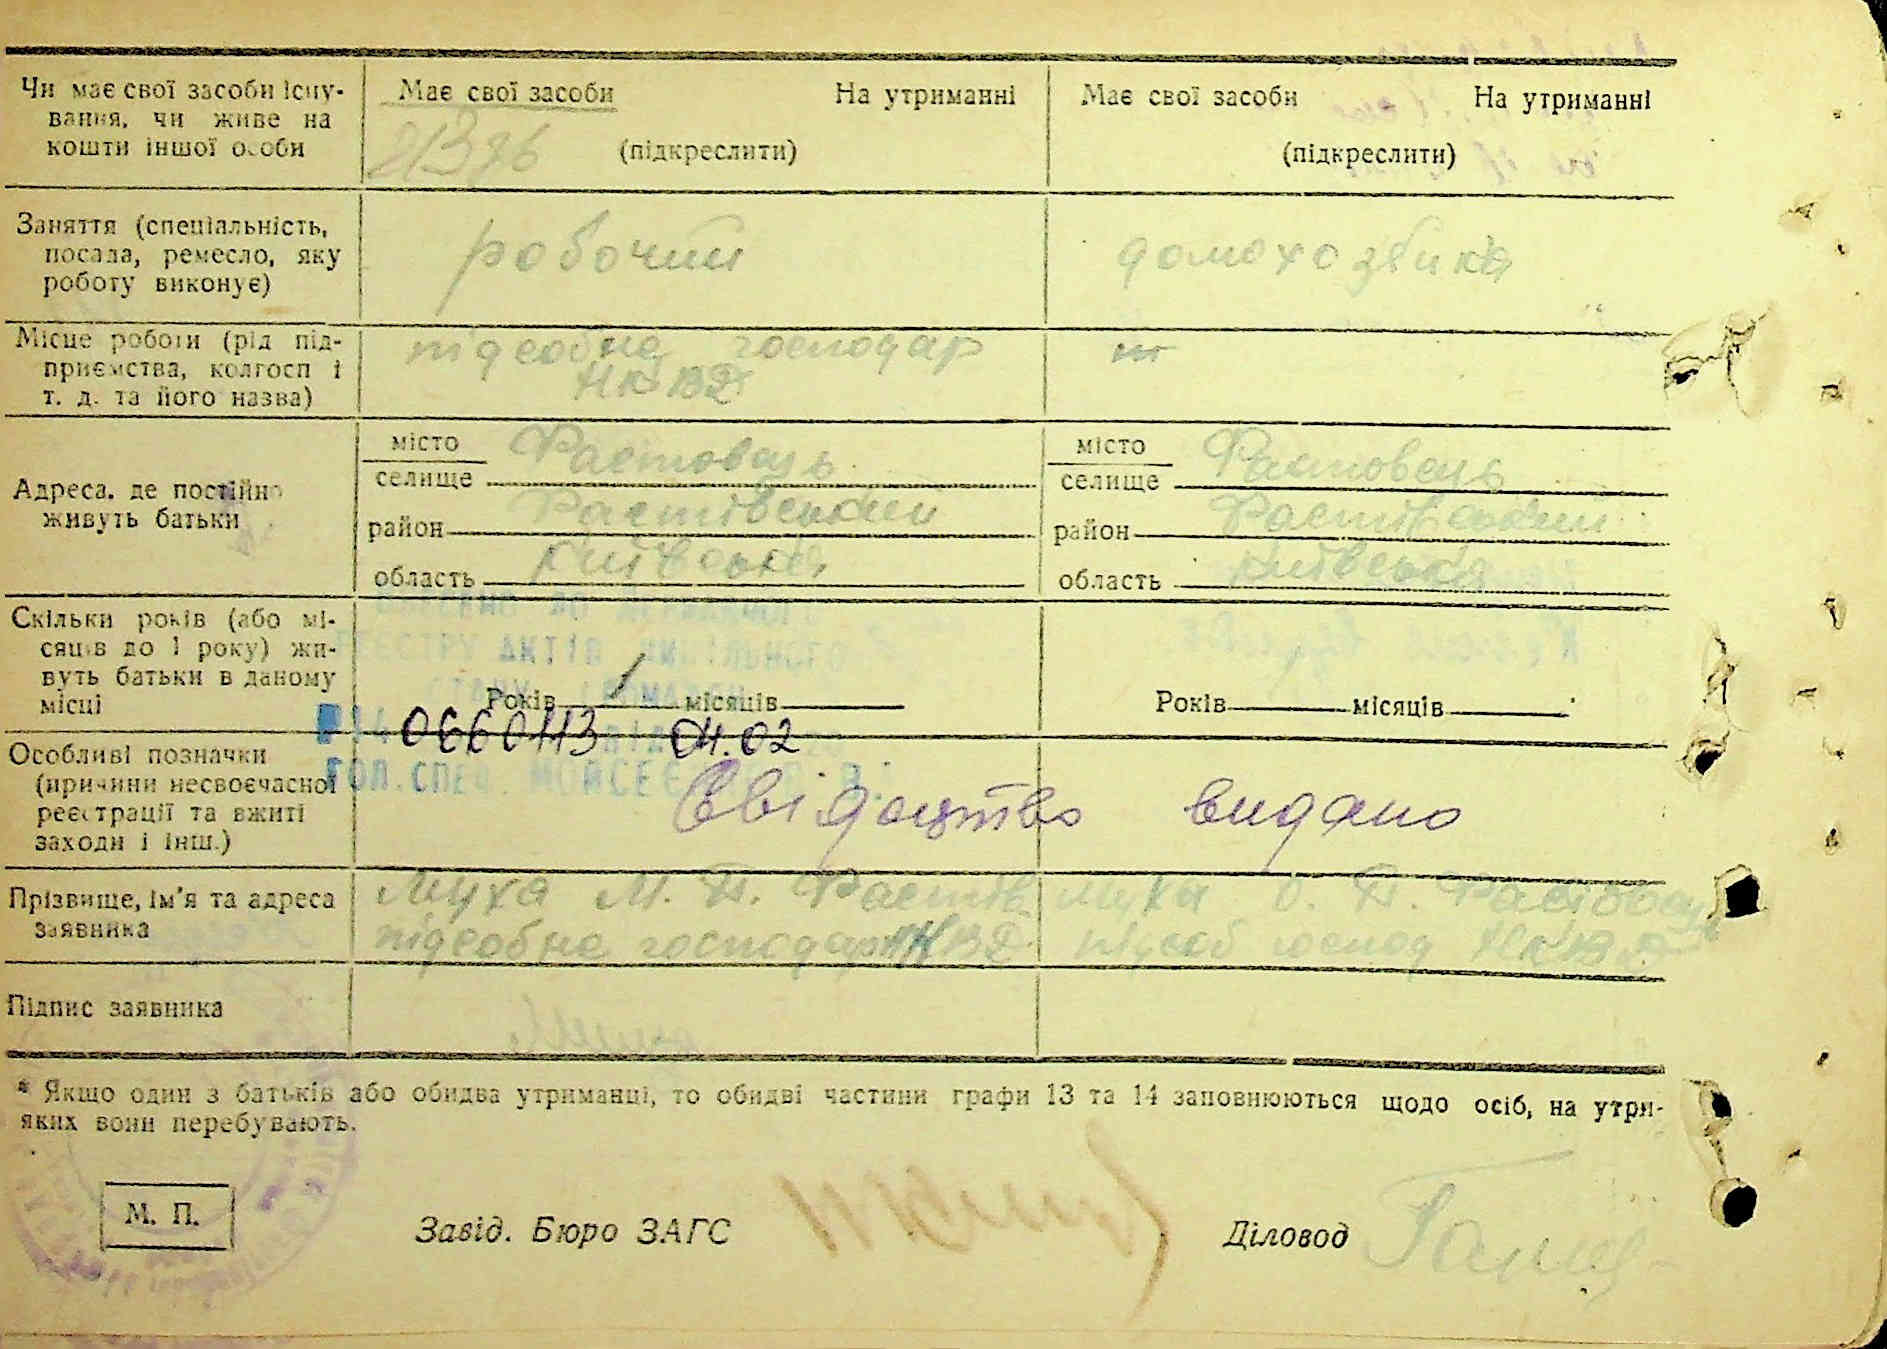 Чи має свої засоби існу-
вання, чи живе на
кошти іншої особи
Має свої засоби На утриманні
(підкреслити)
Має свої засоби На утриманні
(підкреслити)
Заняття (спеціальність,
посада, ремесло, яку
роботу виконує)
робочий
домохозяйка
Місце роботи (рід під-
приємства, колгосп і
т. д. та його назва)
підсобне господар
НКВД
Адреса, де постійно
живуть батьки
місто
селище Фастовець
район Фастівський
область Київська
місто
селище Фастовець
район Фастівський
область Київська
Скільки років (або мі-
сяців до 1 року) жи-
вуть батьки в даному
місці
Років 1 місяців
Років місяців
ВНЕСЕНО ДО ДЕРЖАВНОГО
РЕЄСТРУ АКТІВ ЦИВІЛЬНОГО
СТАНУ ГРОМАДЯН
0660113 04.02
ГОЛ.СПЕЦ.
Особливі позначки
(причини несвоєчасної
реєстрації та вжиті
заходи і інш.)
Свідоцтво видано
Прізвище, ім'я та адреса
заявника
Муха М. П. Фастів
підсобне господар НКВД
Муха О. П. Фастовець
підсоб господ НКВД
Підпис заявника
* Якщо один з батьків або обидва утриманці, то обидві частини графи 13 та 14 заповнюються щодо осіб, на утри-
яких вони перебувають.
М. П.
Завід. Бюро ЗАГС
Діловод